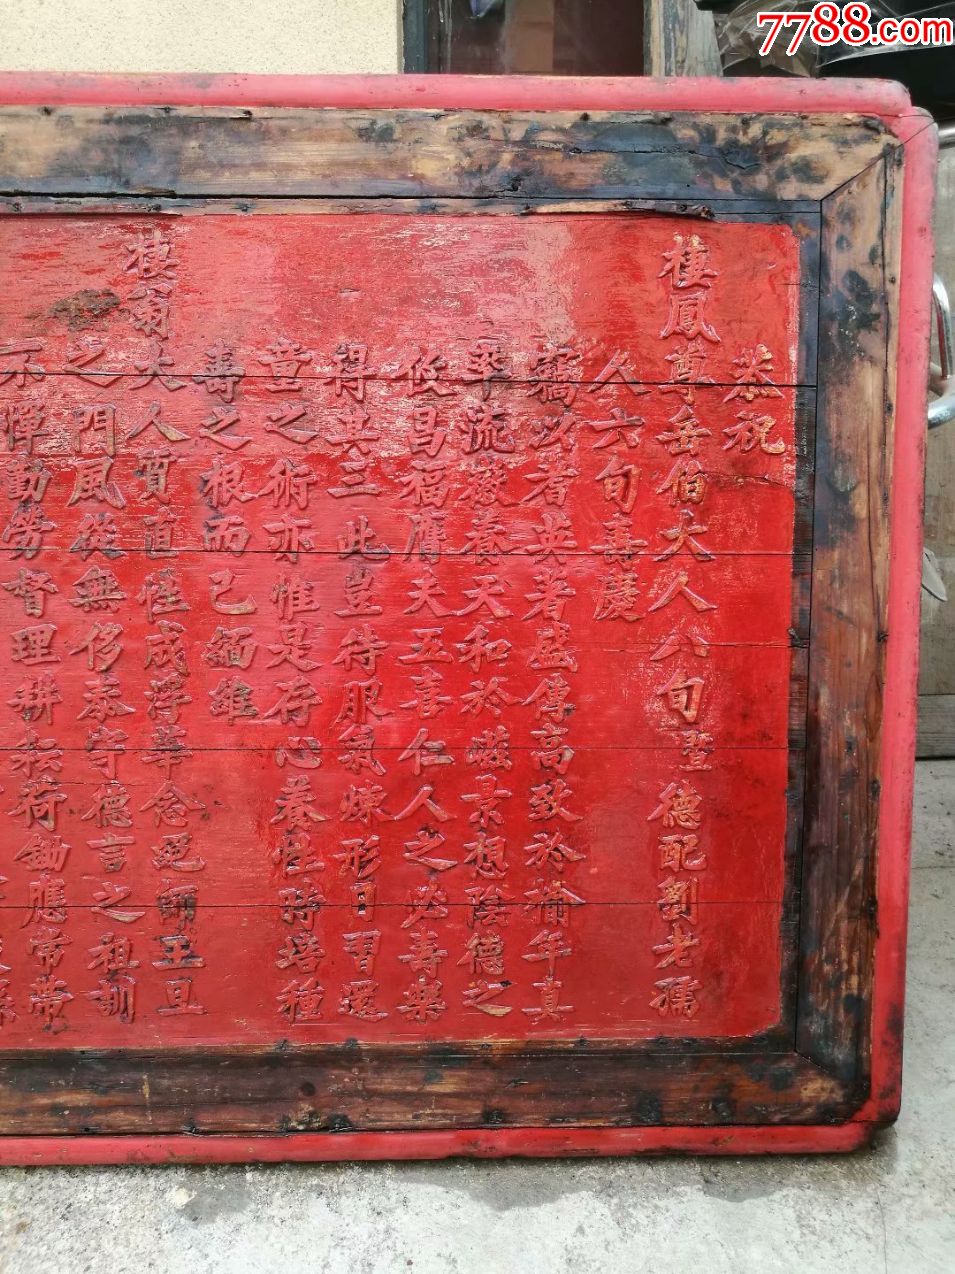 7788.com
恭祝
棲鳳尊岳伯大人八旬暨德配劉老孺
人六旬壽慶
竊以耆英著盛傳高致於掄年真
率流徽養天和於嵫景想陰德之
攸昌福膺夫五喜仁人之必壽樂
得其三此豈待服氣煉形日習還
童之術亦惟是存心養性時培種
壽之根而已緬維
棲翁大人質直性成浮華念絕師王旦
之門風從無侈泰守德言之祖訓
不憚勤勞督理耕耘荷鋤應常帶